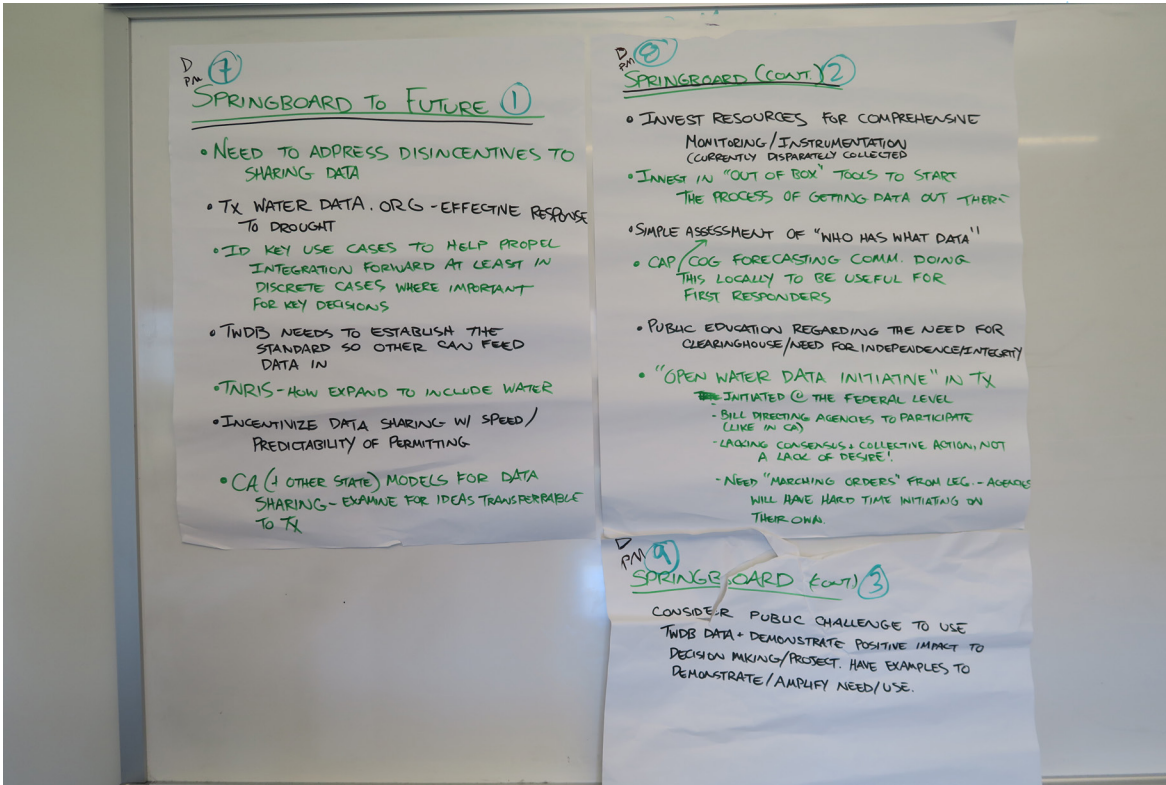 D PM 7
SPRINGBOARD TO FUTURE 1
• NEED TO ADPRESS DISINCENTIVES TO
SHARING DATA
• TX WATER DATA.ORG - EFFECTIVE RESPONSE
TO DROUGHT
• ID KEY USE CASES TO HELP PROPEL
INTEGRATION FORWARD AT LEAST IN
DISCRETE CASES WHERE IMPORTANT
FOR KEY DECISIONS
• TWDB NEEDS TO ESTABLISH THE
STANDARD SO OTHER CAN FEED
DATA IN
• TNRIS - HOW EXPAND TO INCLUDE WATER
• INCENTIVIZE DATA SHARING W/ SPEED/
PREDICTABILITY OF PERMITTING
• CA (+ OTHER STATE) MODELS FOR DATA
SHARING - EXAMINE FOR IDEAS TRANSFERRABLE
TO TX
D PM 8
SPRINGBOARD (CONT.) 2
• INVEST RESOURCES FOR COMPREHENSIVE
MONITORING/INSTRUMENTATION
(CURRENTLY DISPARATELY COLLECTED
• INVEST IN "OUT OF BOX" TOOLS TO START
THE PROCESS OF GETTING DATA OUT THERE
• SIMPLE ASSESSMENT OF "WHO HAS WHAT DATA"
• CAP/COG FORECASTING COMM. DOING
THIS LOCALLY TO BE USEFUL FOR
FIRST RESPONDERS
• PUBLIC EDUCATION REGARDING THE NEED FOR
CLEARINGHOUSE/NEED FOR INDEPENDENCE/INTEGRITY
• "OPEN WATER DATA INITIATIVE" IN TX
INITIATED @ THE FEDERAL LEVEL
- BILL DIRECTING AGENCIES TO PARTICIPATE
(LIKE IN CA)
- LACKING CONSENSUS + COLLECTIVE ACTION, NOT
A LACK OF DESIRE!
- NEED "MARCHING ORDERS" FROM LEG. - AGENCIES
WILL HAVE HARD TIME INITIATING ON
THEIR OWN.
D PM 9
SPRINGBOARD (CONT) 3
CONSIDER PUBLIC CHALLENGE TO USE
TWDB DATA + DEMONSTRATE POSITIVE IMPACT TO
DECISION MKING/PROJECT. HAVE EXAMPLES TO
DEMONSTRATE/AMPLIFY NEED/USE.